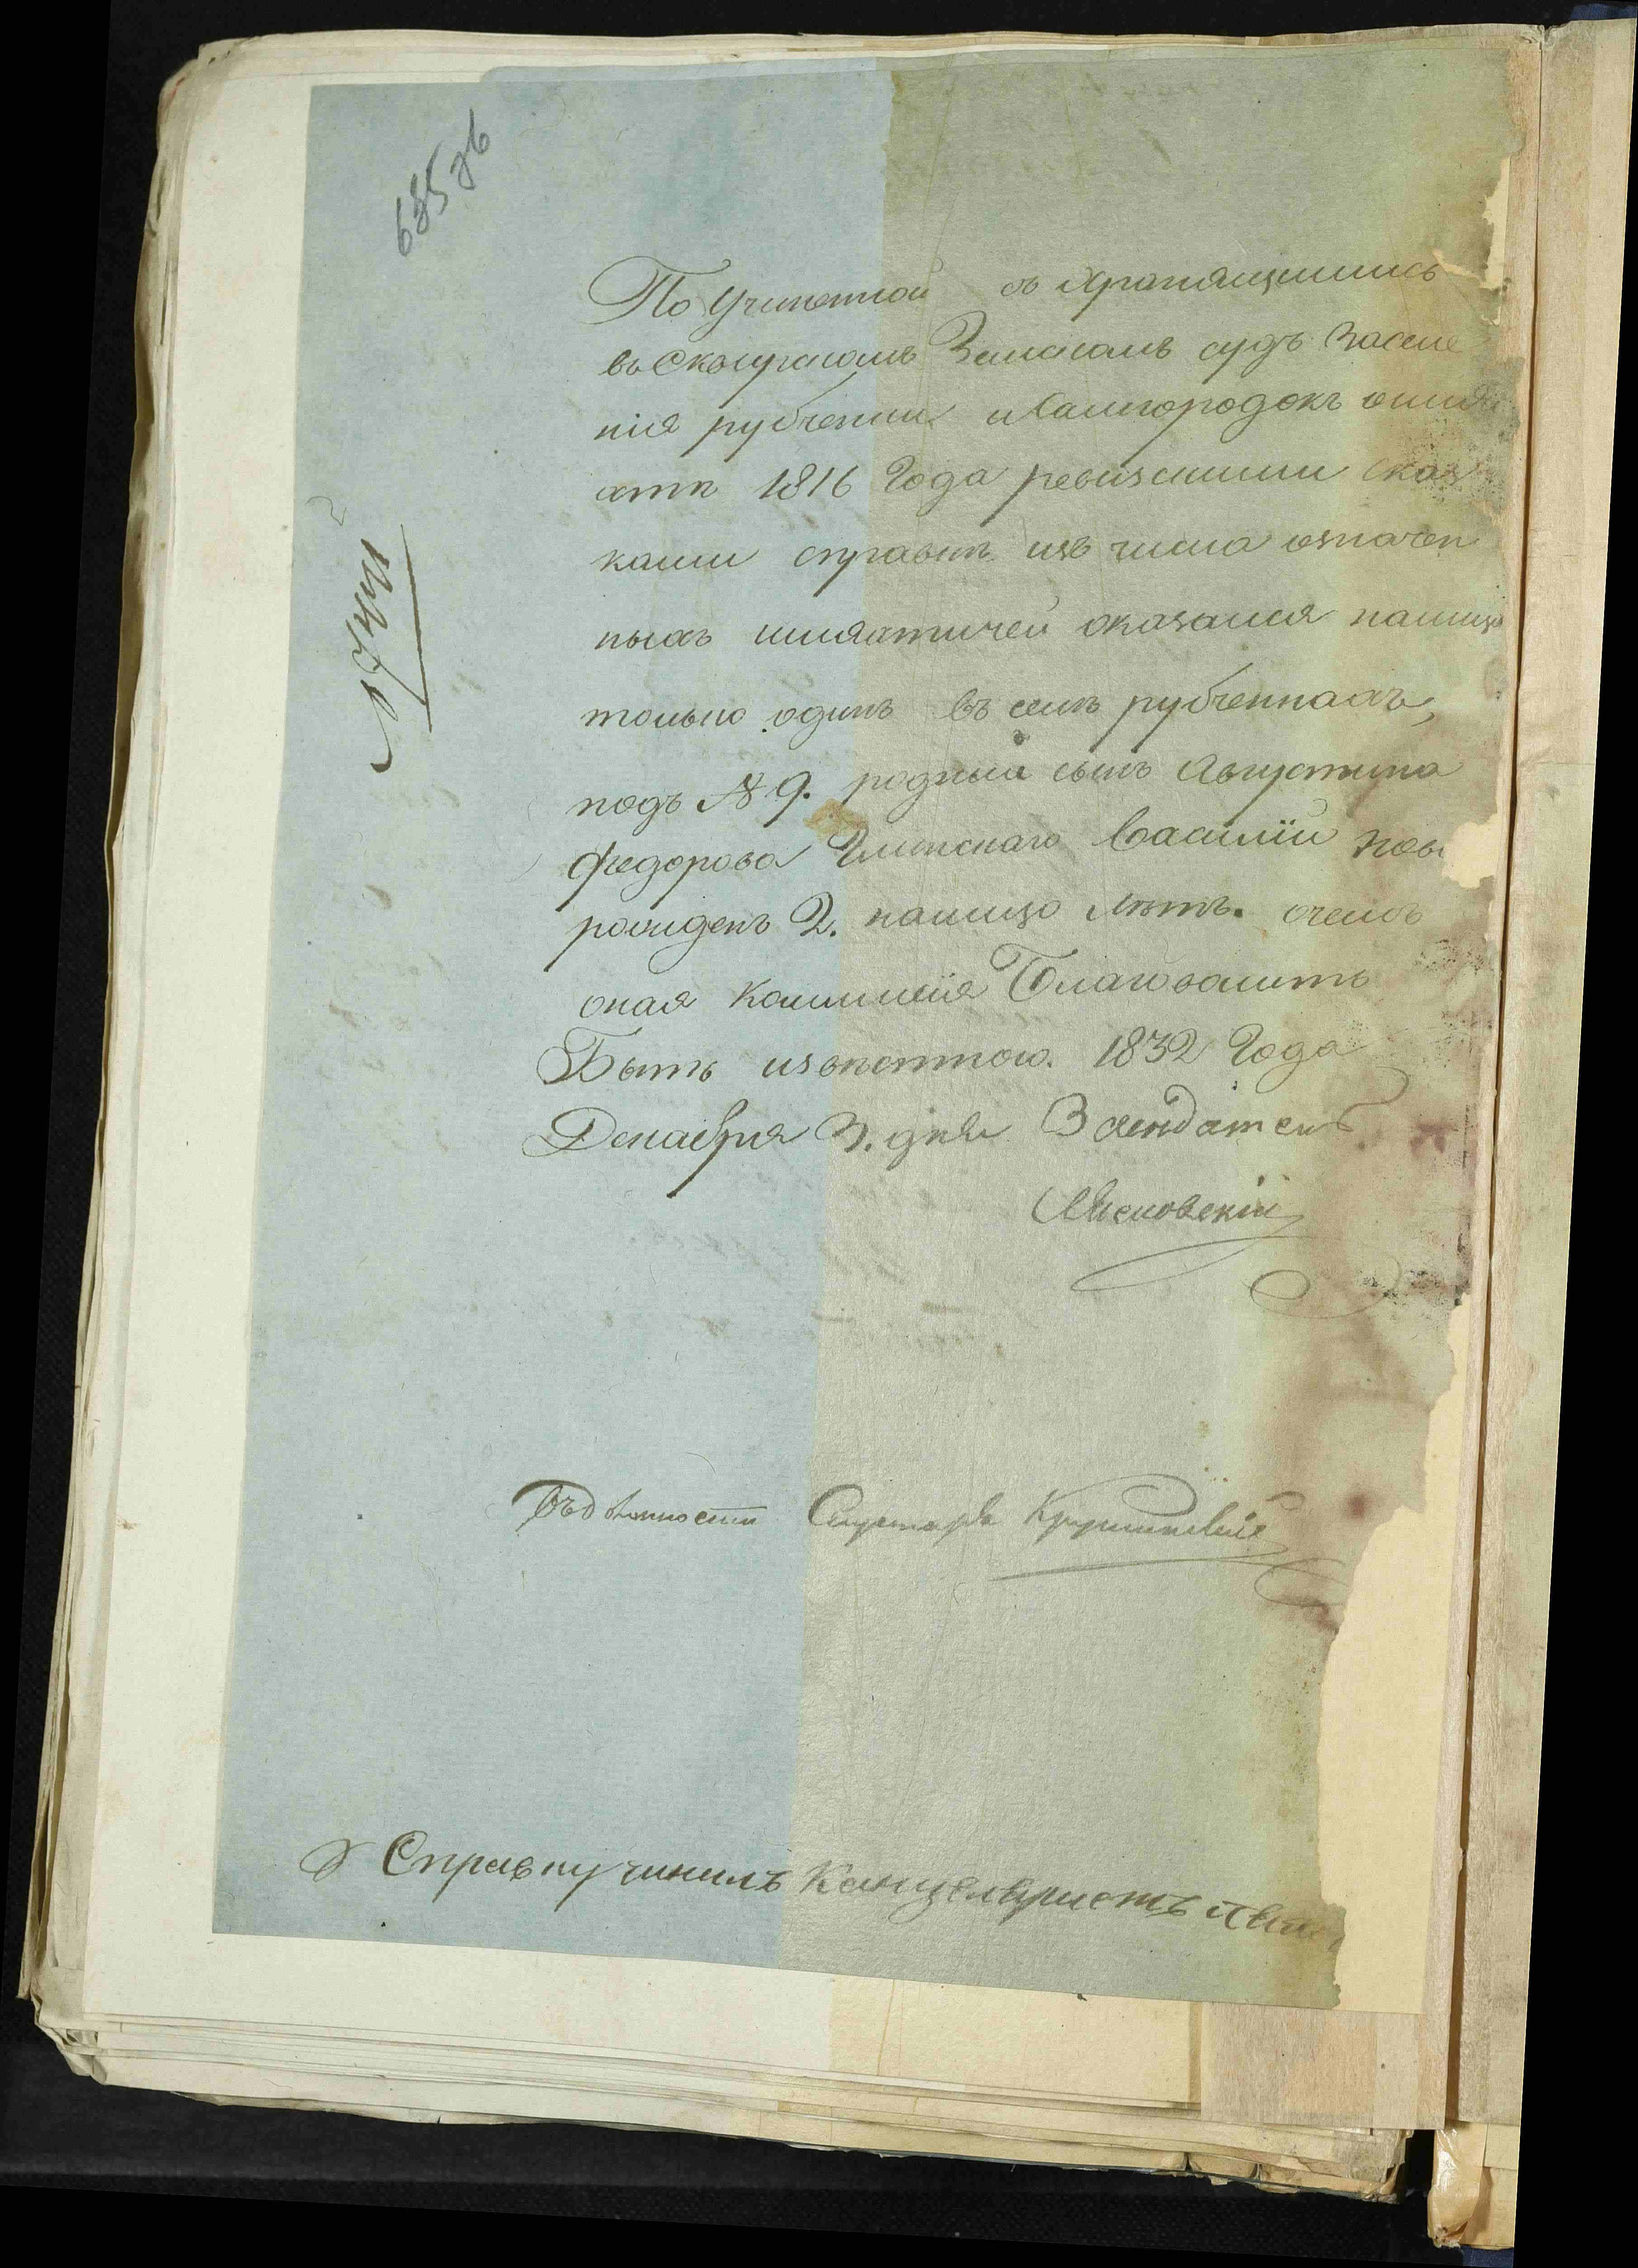 635 зв
По учиненной съ Хранящимись
въ Сквирскомъ Земскомъ судъ Заселе
нія рубченки и Самгородокъ о шля
хтѣ 1816 Года ревизскими сказ
ками справкѣ изъ числа означен
ныхъ шляхтичей оказался налицо
только одинъ въ селѣ рубченкахъ,
подъ № 9. родной сынъ Августина
Федорова Глинскаго Василій ново
рожденъ 2. налицо лѣтъ. о чемъ
оная коммисія Благоволитъ
Быть извѣстною. 1832 Года
Декабря 3. дня Засѣдатель
Въ должности Секретаря
Справку чинилъ Канцеляристъ